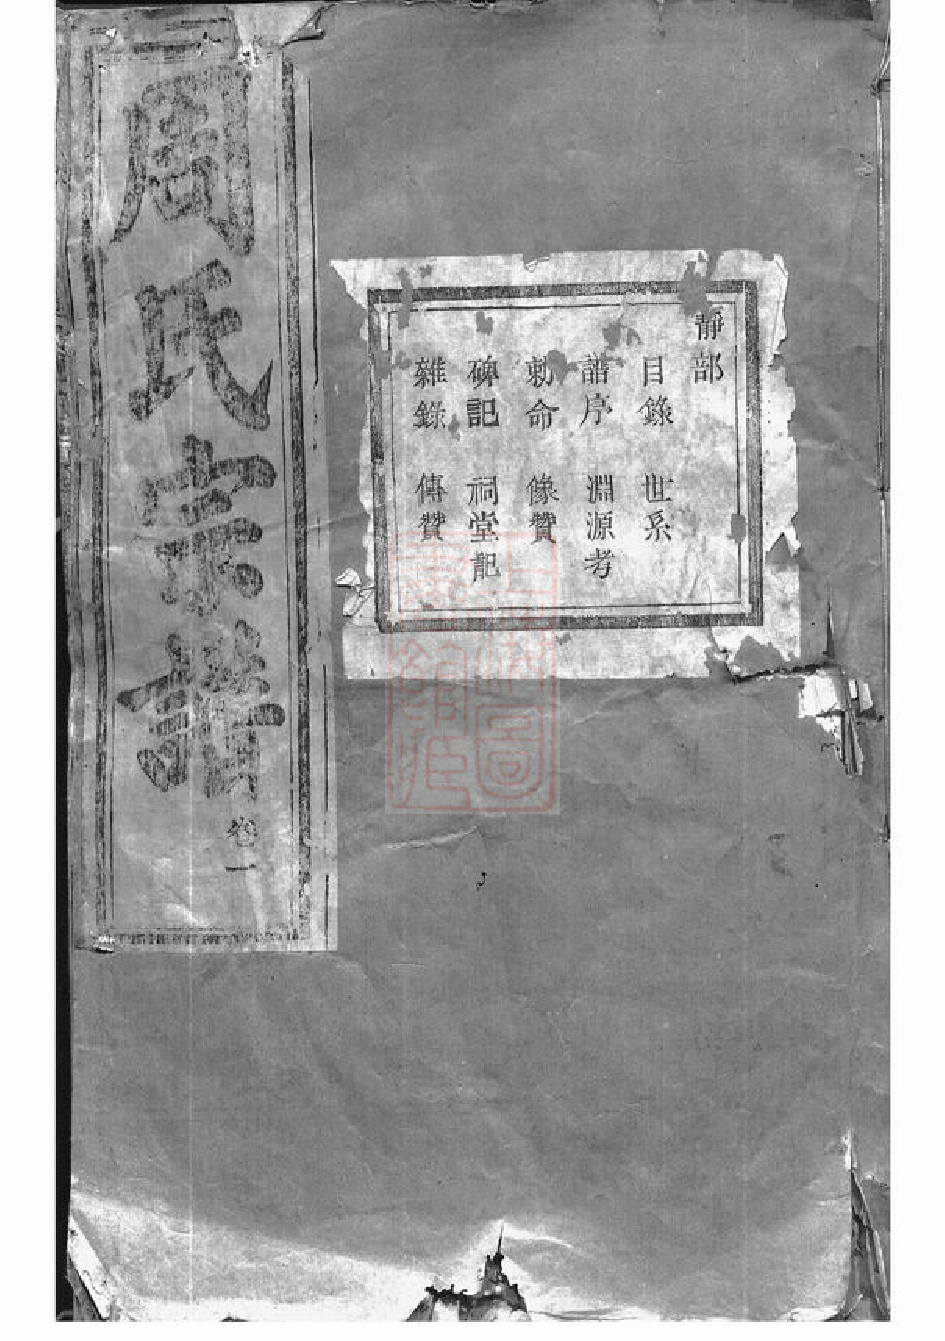 周氏宗譜
卷一
靜部
目錄 世系
譜序 淵源考
勅命 像贊
碑記 祠堂記
雜錄 傳贊
上海圖書館藏